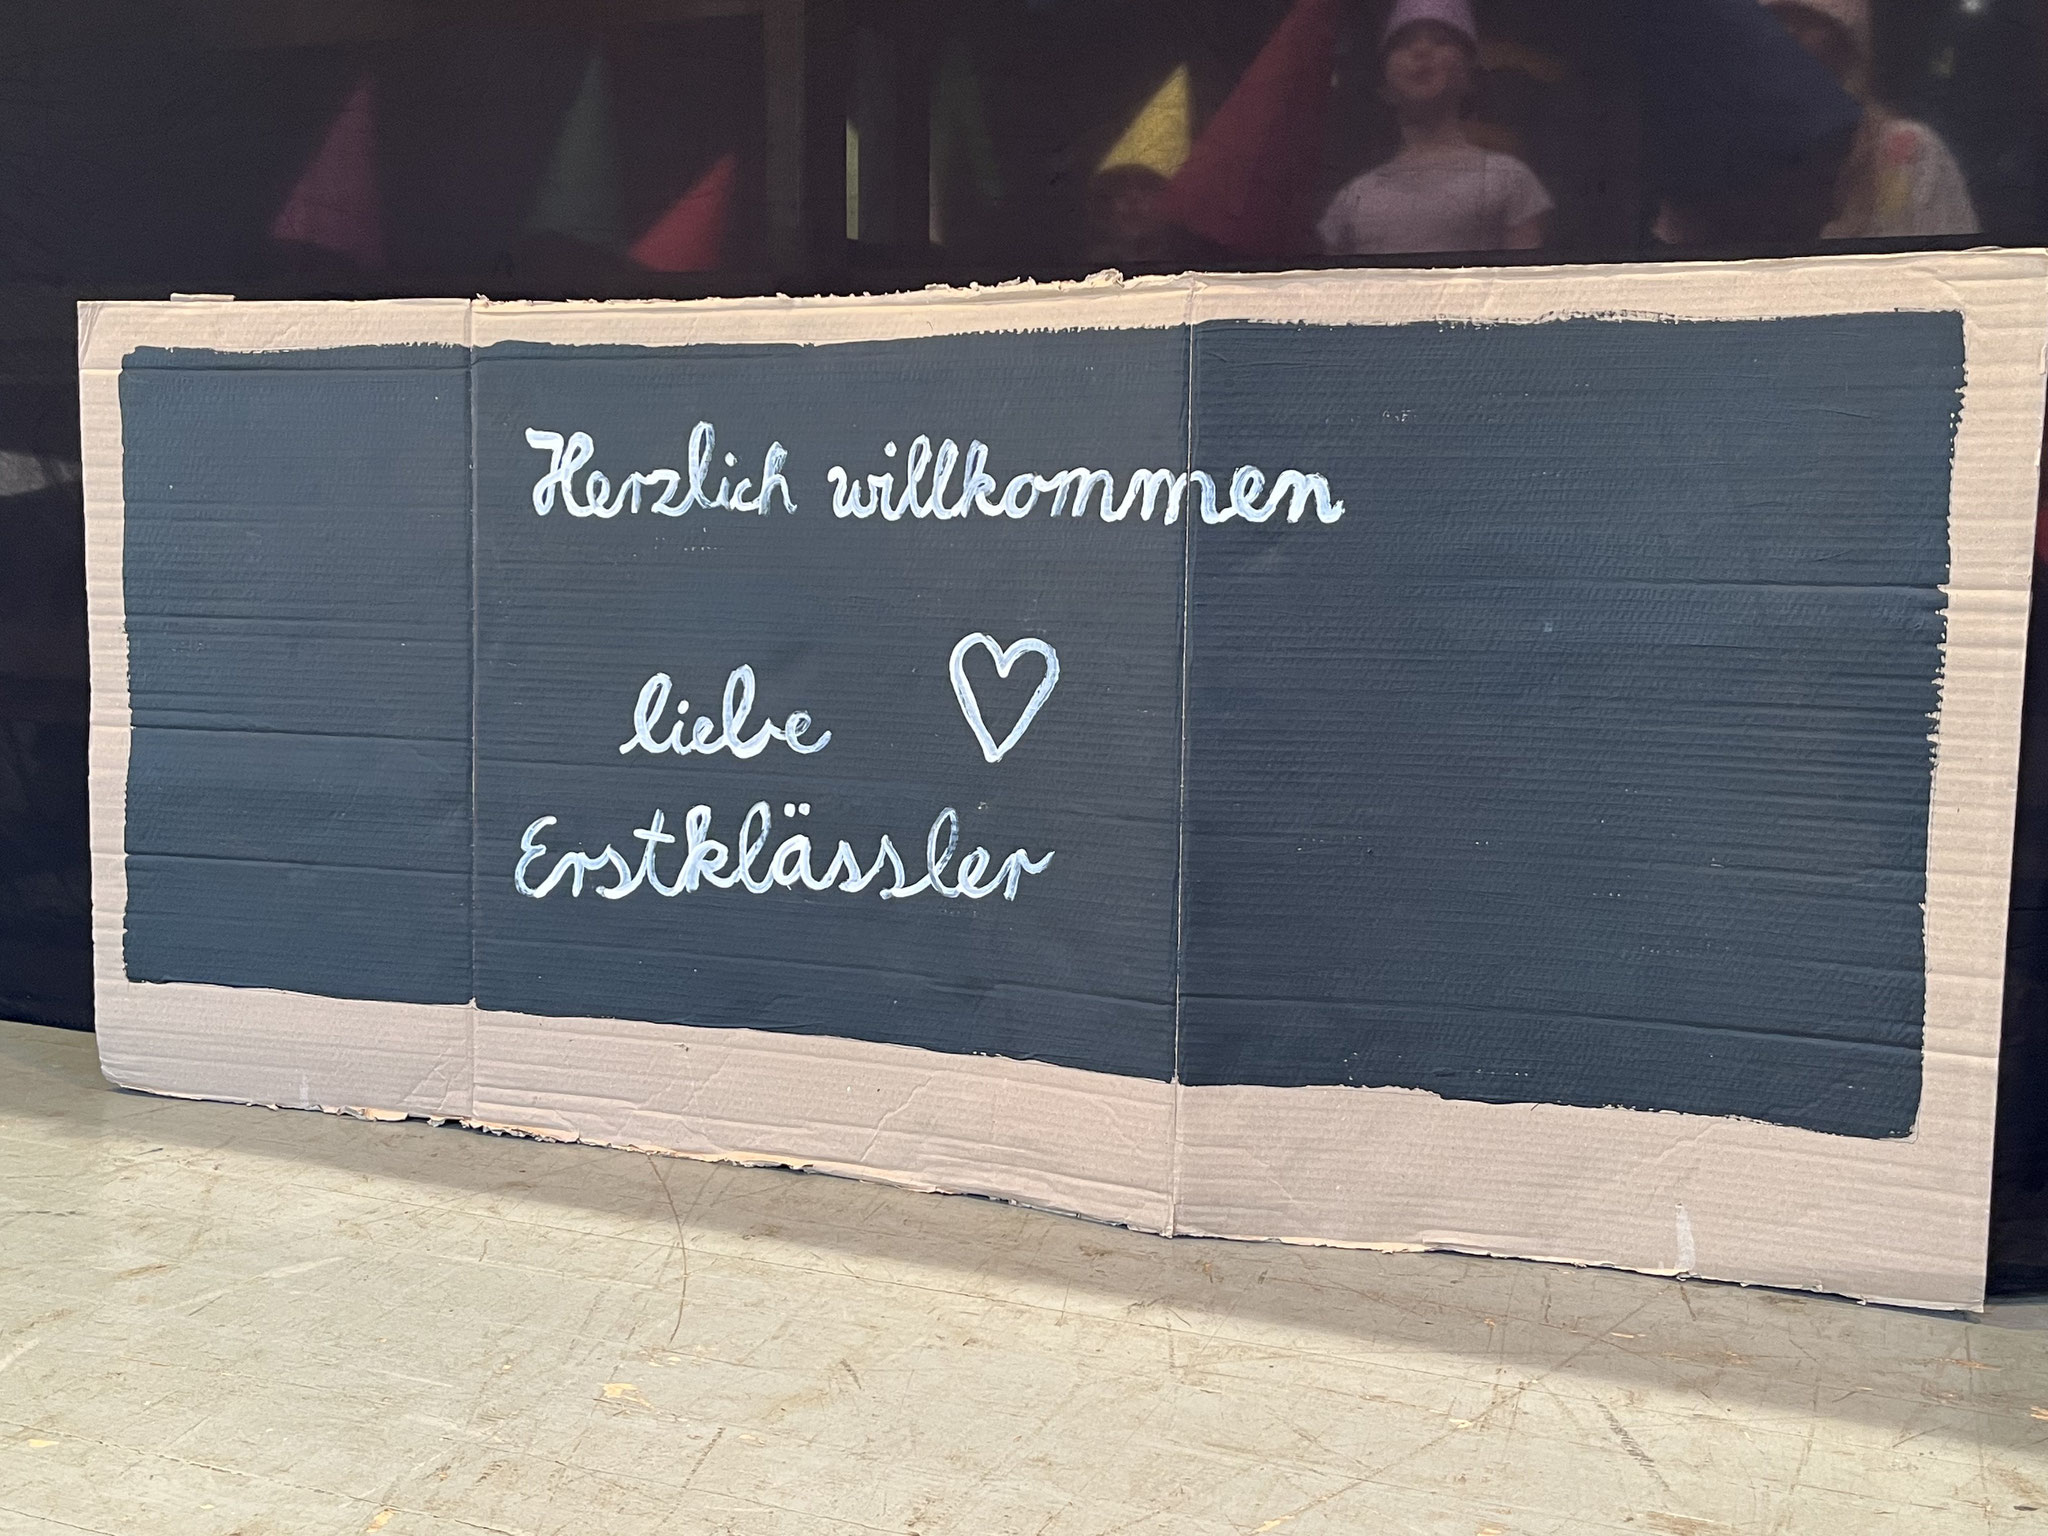 Herzlich willkommen
liebe
Erstklässler